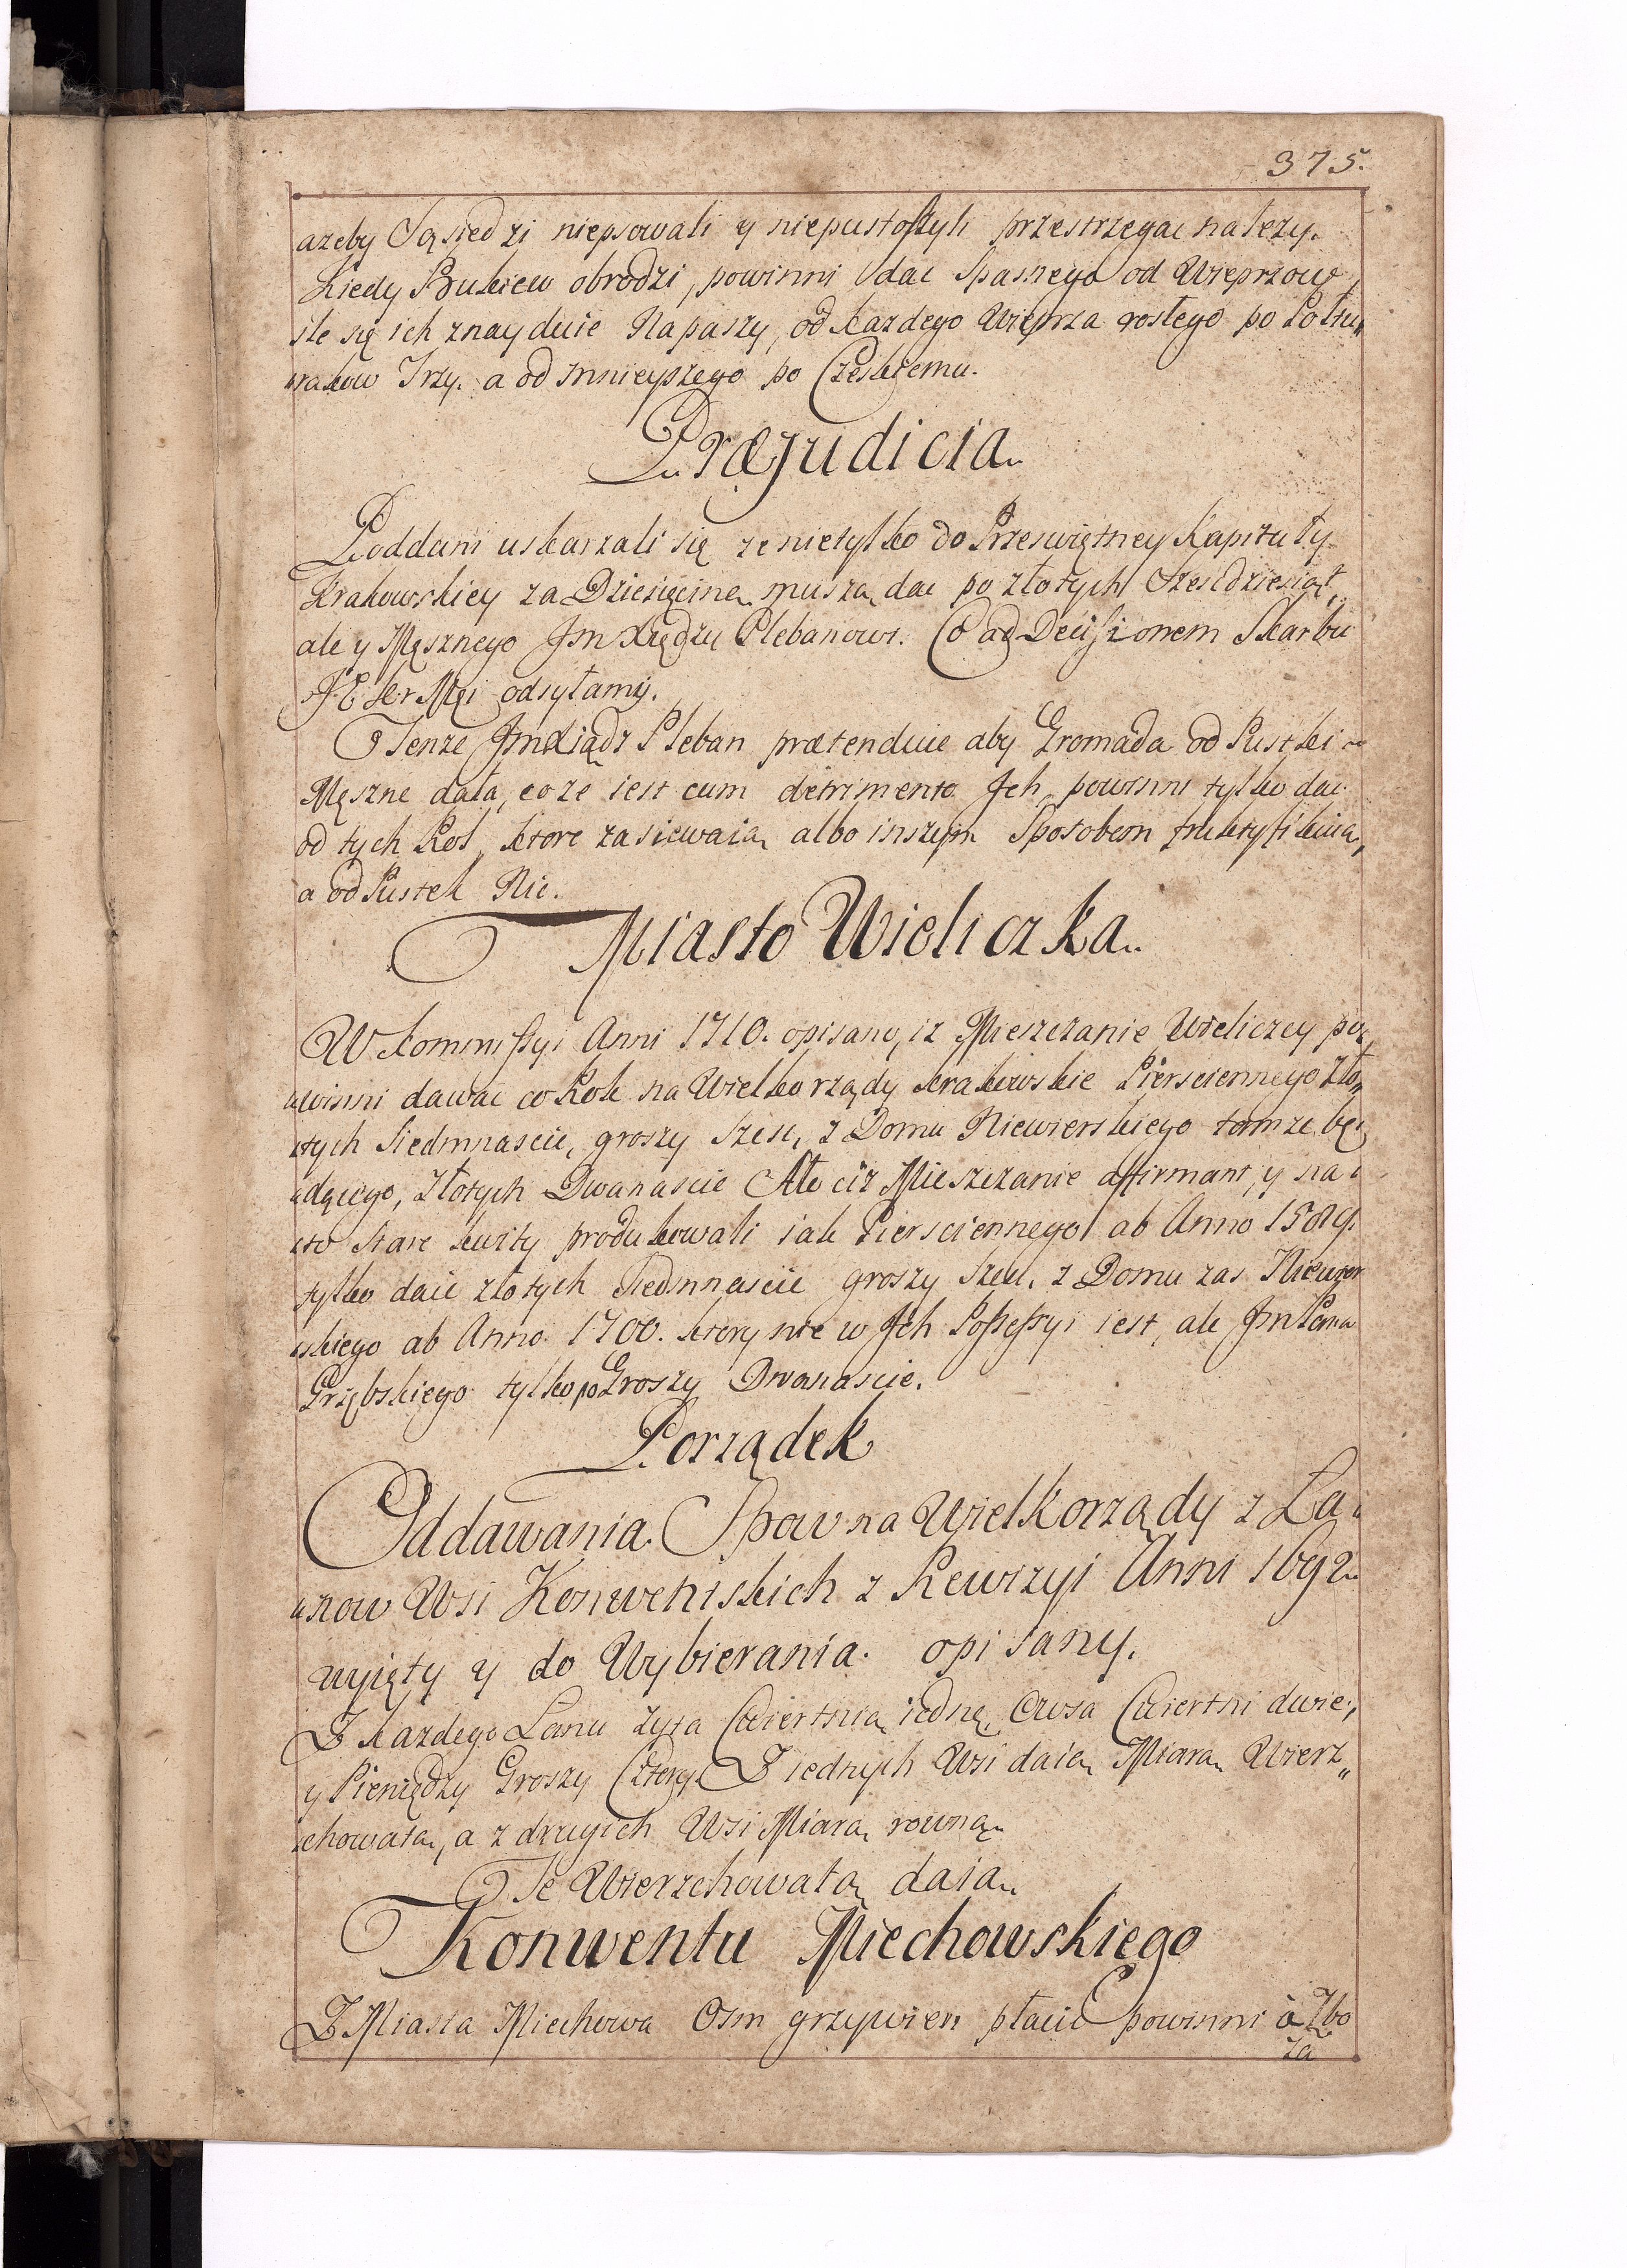 375.
azeby Sąsiedzi niepsowali y niepustoszyli przestrzegac nalezy.
Kiedy Bukiew obrodzi, powinni dac Spasnego od Wieprzow,
ile się ich znayduie Na paszy, od kazdego Wieprza rosłego po Połtu„
rakow Trzy. a od mnieyszego po Czeskiemu.
Præjudicia.
Poddani uskarzali się ze nietylko do Przeswiętney Kapituły
Krakowskiey za Dziesięcinę muszą dac po złotych Szescdziesiąt,
ale y Mesznego Jm Xiędzu Plebanowi. Co ad Decisionem Skarbu
J K Mci odsyłamy.
Tenze Jm Xiądz Pleban prætenduie aby Gromada od Pustki
Meszne dała, co ze iest cum detrimento Jch, powinni tylko dac
od tych Rol, ktore zasiewaią albo inszym Sposobem fruktyfikuią,
a od Pustek Nic.
Miasto Wieliczka.
W Kommissyi Anni 1710. opisano, iz Mieszczanie Wieliczcy po„
winni dawac co Rok na Wielkorządy krakowskie Piersciennego Zło„
tych Siedmnascie, groszy Szesc, z Domu Niewierskiego tamze bę„
dącego, Złotych Dwanascie Ale ciz Mieszczanie affirmant, y na
to Stare kwity produkowali iak Piersciennego ab Anno 1589.
tylko daie złotych Siedmnascie groszy Szesc, z Domu zas Niewier
skiego ab Anno 1700. ktory nie w Jch Possessyi iest, ale Jm Pana
Grzębskiego tylko po Groszy Dwanascie.
Porządek
Oddawania Spow na Wielkorządy z Ła„
now Wsi Konwenskich z Rewizyi Anni 1692
wyięty y do Wybierania opisany.
Z kazdego Lanu Zyta Cwiertnią iednę, Owsa Cwiertni dwie,
y Pieniędzy Groszy Cztery. Z iednych Wsi daią Miarą Wierz„
chowatą, a z drugich Wsi Miarą rowną.
Te Wierzchowatą daią.
Konwentu Miechowskiego
Z Miasta Miechowa Osm grzywien płacic powinni à Zbo
za